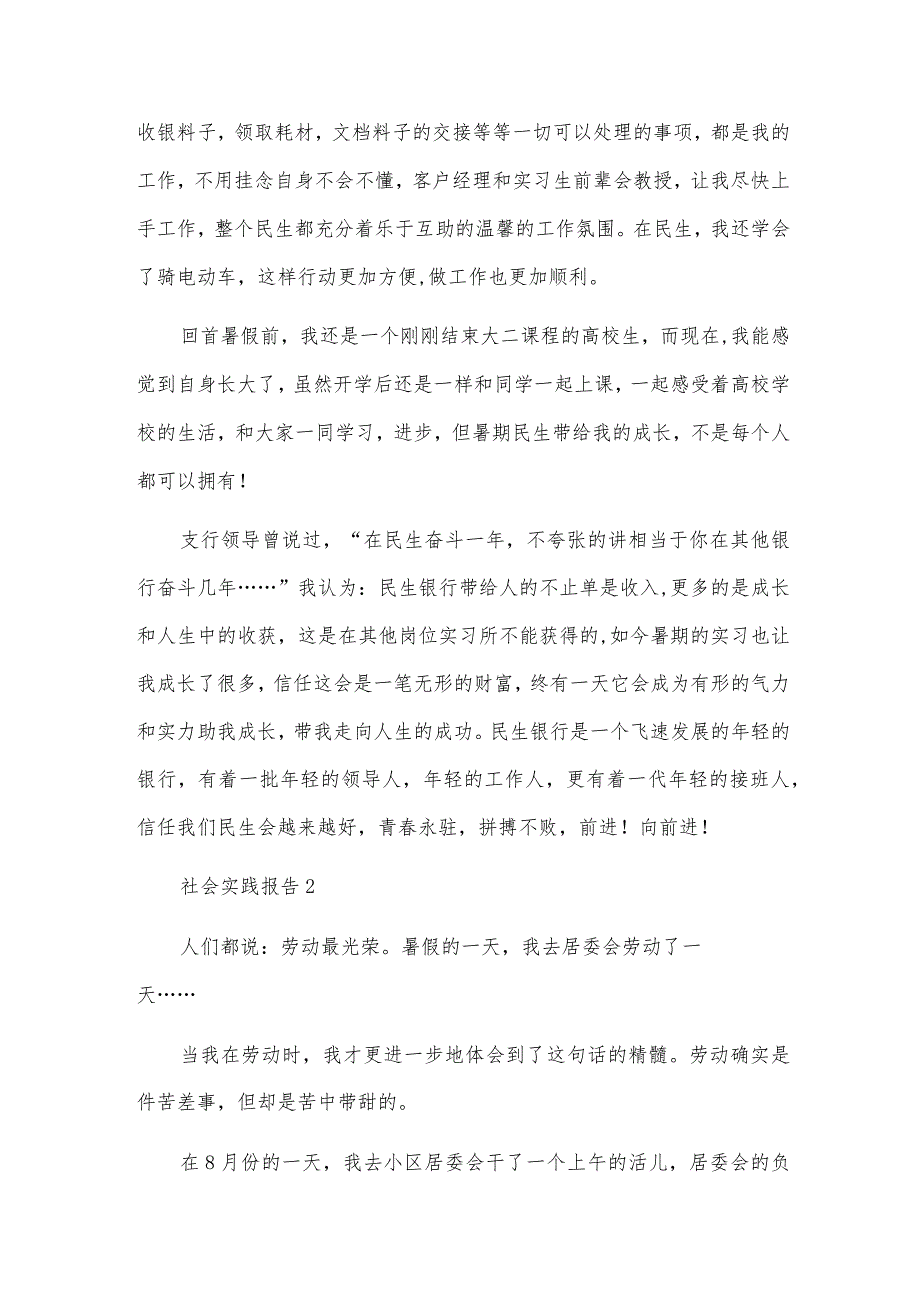 收银料子，领取耗材，文档料子的交接等等一切可以处理的事项，都是我的
工作，不用挂念自身不会不懂，客户经理和实习生前辈会教授，让我尽快上
手工作，整个民生都充分着乐于互助的温馨的工作氛围。在民生，我还学会
了骑电动车，这样行动更加方便,做工作也更加顺利。
回首暑假前，我还是一个刚刚结束大二课程的高校生，而现在,我能感
觉到自身长大了，虽然开学后还是一样和同学一起上课，一起感受着高校学
校的生活，和大家一同学习，进步，但暑期民生带给我的成长，不是每个人
都可以拥有！
支行领导曾说过，“在民生奋斗一年，不夸张的讲相当于你在其他银
行奋斗几年……”我认为：民生银行带给人的不止单是收入,更多的是成长
和人生中的收获，这是在其他岗位实习所不能获得的,如今暑期的实习也让
我成长了很多，信任这会是一笔无形的财富，终有一天它会成为有形的气力
和实力助我成长，带我走向人生的成功。民生银行是一个飞速发展的年轻的
银行，有着一批年轻的领导人，年轻的工作人，更有着一代年轻的接班人，
信任我们民生会越来越好，青春永驻，拼搏不败，前进！向前进！
社会实践报告2
人们都说：劳动最光荣。暑假的一天，我去居委会劳动了一
天……
当我在劳动时，我才更进一步地体会到了这句话的精髓。劳动确实是
件苦差事，但却是苦中带甜的。
在8月份的一天，我去小区居委会干了一个上午的活儿，居委会的负